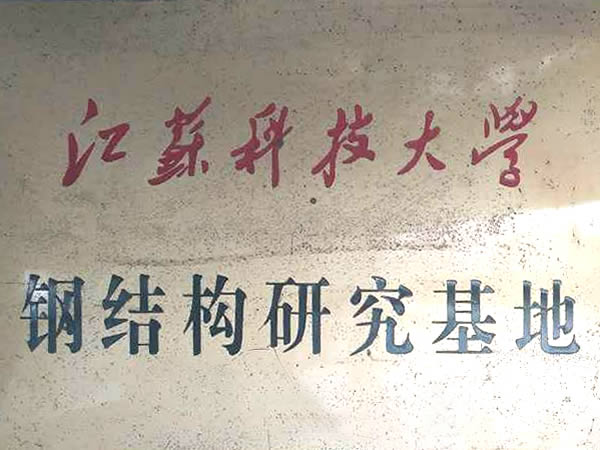 江蘇科技大學
钢结构研究基地